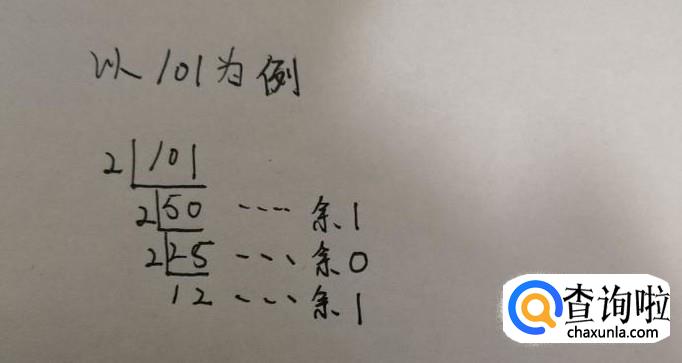 以101为例
2 101
2 50 ---- 余1
2 25 ---- 余0
12 ---- 余1
查询啦
chaxunla.com